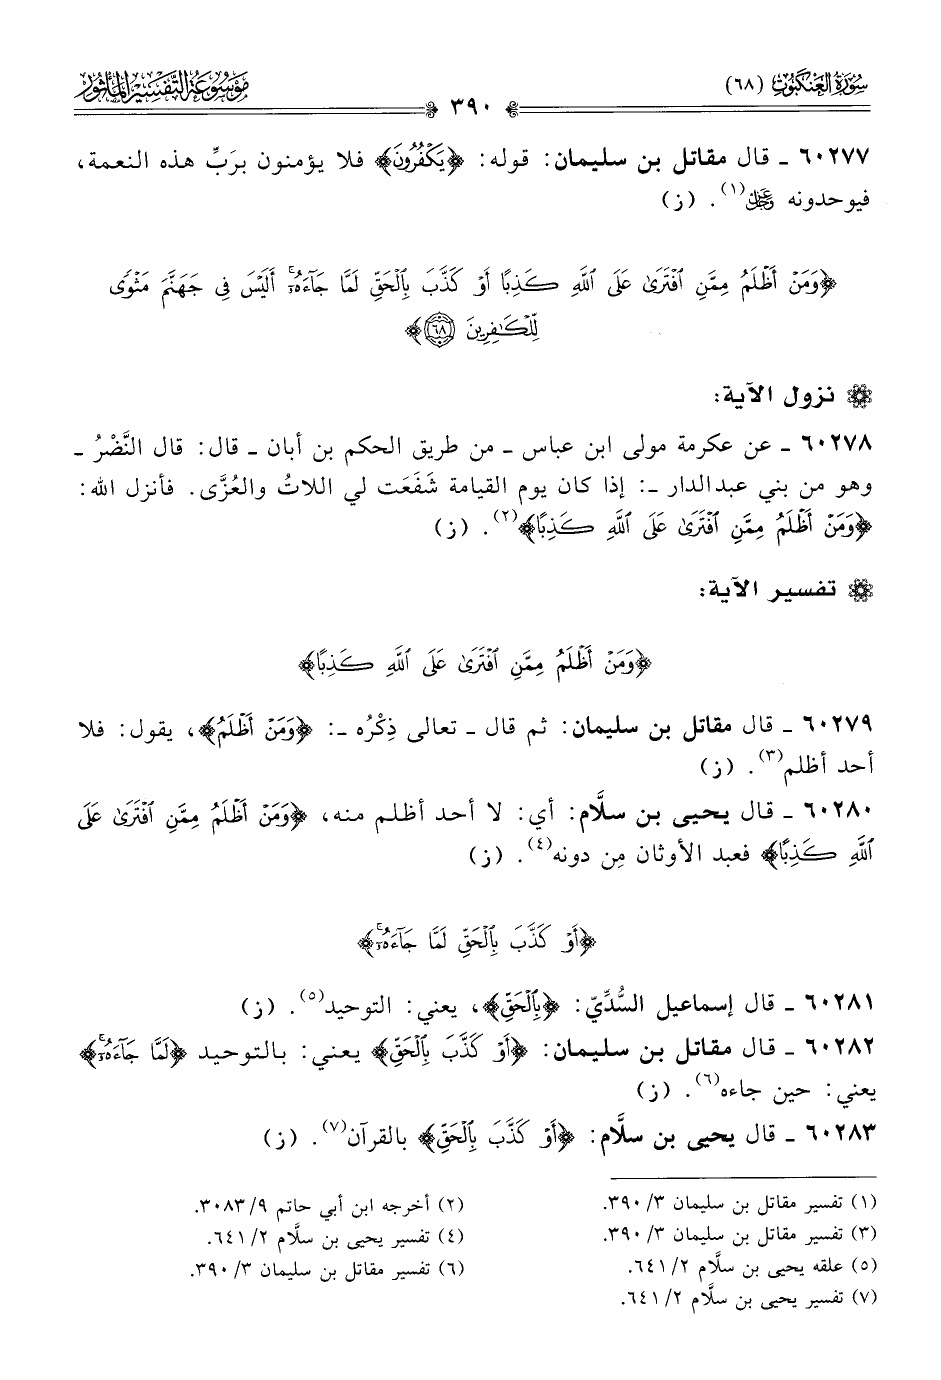 سورة العنكبوت (٦٨)
٣٩٠
موسوعة التفسير المأثور
٦٠٢٧٧ ـ قال مقاتل بن سليمان: قوله: ﴿يَكْفُرُونَ﴾ فلا يؤمنون بربِّ هذه النعمة،
فيوحدونه عز وجل(١). (ز)
﴿وَمَنْ أَظْلَمُ مِمَّنِ ٱفْتَرَىٰ عَلَى ٱللَّهِ كَذِبًا أَوْ كَذَّبَ بِٱلْحَقِّ لَمَّا جَآءَهُۥٓ أَلَيْسَ فِى جَهَنَّمَ مَثْوًى
لِّلْكَٰفِرِينَ ٦٨﴾
نزول الآية:
٦٠٢٧٨ ـ عن عكرمة مولى ابن عباس ـ من طريق الحكم بن أبان ـ قال: قال النَّضْرُ ـ
وهو من بني عبدالدار ـ: إذا كان يوم القيامة شَفَعَت لي اللاتُ والعُزَّى. فأنزل الله:
﴿وَمَنْ أَظْلَمُ مِمَّنِ ٱفْتَرَىٰ عَلَى ٱللَّهِ كَذِبًا﴾(٢). (ز)
تفسير الآية:
﴿وَمَنْ أَظْلَمُ مِمَّنِ ٱفْتَرَىٰ عَلَى ٱللَّهِ كَذِبًا﴾
٦٠٢٧٩ ـ قال مقاتل بن سليمان: ثم قال ـ تعالى ذِكْرُه ـ: ﴿وَمَنْ أَظْلَمُ﴾، يقول: فلا
أحد أظلم(٣). (ز)
٦٠٢٨٠ ـ قال يحيى بن سلَّام: أي: لا أحد أظلم منه، ﴿وَمَنْ أَظْلَمُ مِمَّنِ ٱفْتَرَىٰ عَلَى
ٱللَّهِ كَذِبًا﴾ فعبد الأوثان مِن دونه(٤). (ز)
﴿أَوْ كَذَّبَ بِٱلْحَقِّ لَمَّا جَآءَهُۥٓ﴾
٦٠٢٨١ ـ قال إسماعيل السُّدِّيّ: ﴿بِٱلْحَقِّ﴾، يعني: التوحيد(٥). (ز)
٦٠٢٨٢ ـ قال مقاتل بن سليمان: ﴿أَوْ كَذَّبَ بِٱلْحَقِّ﴾ يعني: بالتوحيد ﴿لَمَّا جَآءَهُۥٓ﴾
يعني: حين جاءه(٦). (ز)
٦٠٢٨٣ ـ قال يحيى بن سلَّام: ﴿أَوْ كَذَّبَ بِٱلْحَقِّ﴾ بالقرآن(٧). (ز)
(١) تفسير مقاتل بن سليمان ٣/ ٣٩٠.
(٢) أخرجه ابن أبي حاتم ٩/ ٣٠٨٣.
(٣) تفسير مقاتل بن سليمان ٣/ ٣٩٠.
(٤) تفسير يحيى بن سلَّام ٢/ ٦٤١.
(٥) علقه يحيى بن سلَّام ٢/ ٦٤١.
(٦) تفسير مقاتل بن سليمان ٣/ ٣٩٠.
(٧) تفسير يحيى بن سلَّام ٢/ ٦٤١.